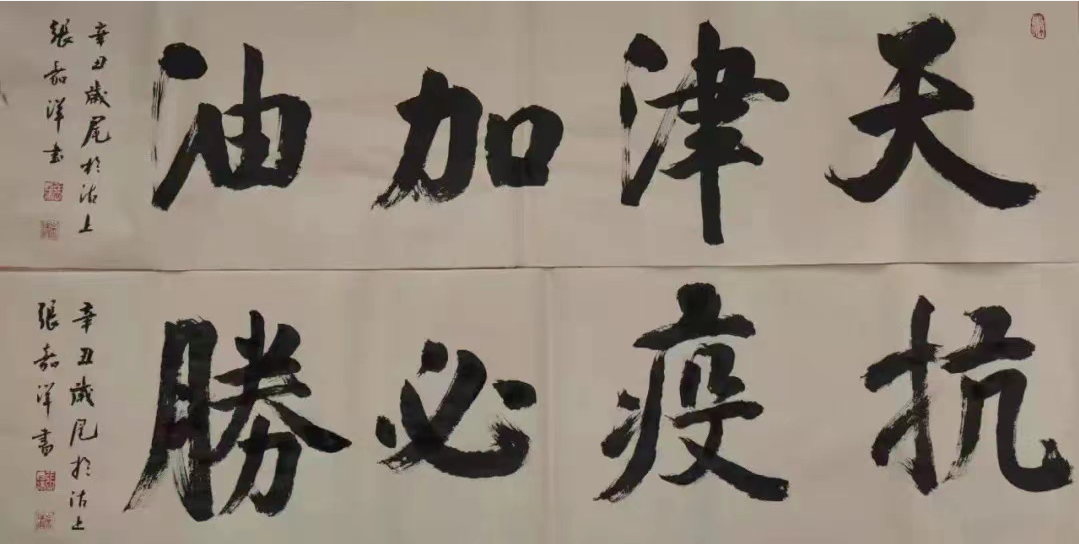 天津加油
辛丑歲尾於沽上
張嘉洋书
抗疫必勝
辛丑歲尾於沽上
張嘉洋書